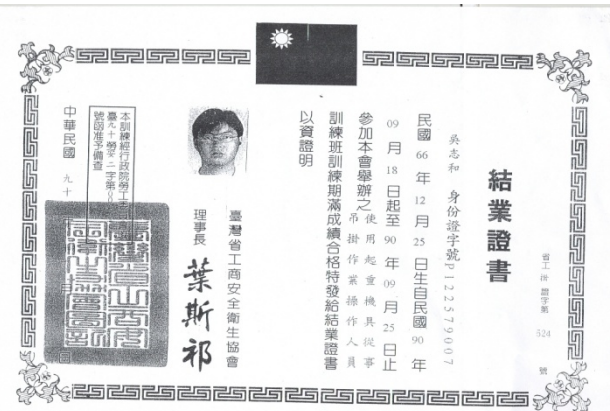 結業證書
省工掛證字第 524 號
吳志和 身份證字號P122579007
民國 66 年 12 月 25 日生自民國 90 年
09 月 18 日起至 90 年 09 月 25 日止
參加本會舉辦之使用起重機具從事吊掛作業操作人員
訓練班訓練期滿成績合格特發給結業證書
以資證明
臺灣省工商安全衛生協會
理事長 葉斯祁
本訓練經行政院勞工
臺九十勞安二字第
號函准予備查
中華民國 九十
日